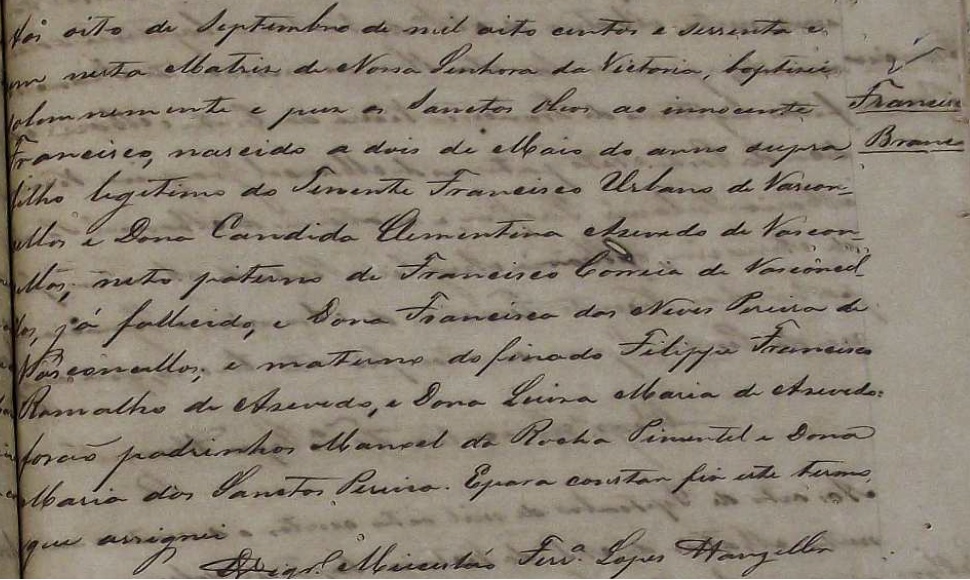 Aos oito de Septembro de mil oito centos e sessenta e
um nesta Matris de Nossa Senhora da Victoria, baptisei
solemnemente e puz os Sanctos Oleos ao innocente
Francisco
Francisco, nascido a dois de Maio do anno supra,
Branco
filho legitimo do Tenente Francisco Urbano de Vascon-
cellos e Dona Candida Clementina Asevedo de Vascon-
cellos, neto paterno de Francisco Correia de Vasconcel
los, já fallecido, e Dona Francisca das Neves Pereira de
Vasconcellos; e materno do finado Filippe Francisco
Ramalho de Asevedo, e Dona Luisa Maria de Asevedo:
forão padrinhos Manoel da Rocha Pimentel e Dona
Maria dos Sanctos Pereira. E para constar fiz este termo,
que assignei
Vigr.º Ferr.ª Lopes